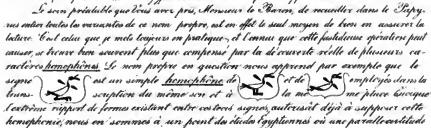 Le soin préalable que Vous avez pris, Monsieur le Baron, de recueillir dans le Papy-
rus entier toutes les variantes de ce nom propre, est en effet le seul moyen de bien en assurer la
lecture. C'est celui que je mets toujours en pratique, et l'ennui que cette fastidieuse opération peut
causer, se trouve bien souvent plus que compensé par la découverte réelle de plusieurs ca-
ractères homophônes. Le nom propre en question nous apprend par exemple que le
signe est un simple homophône de et de employés dans la
trans- scription du même son et à la mê- me place. Quoique
l'extrême rapport de formes existant entre ces trois signes, autorisât déjà à supposer cette
homophonie, nous en sommes à un point des études Egyptiennes où une pareille certitude